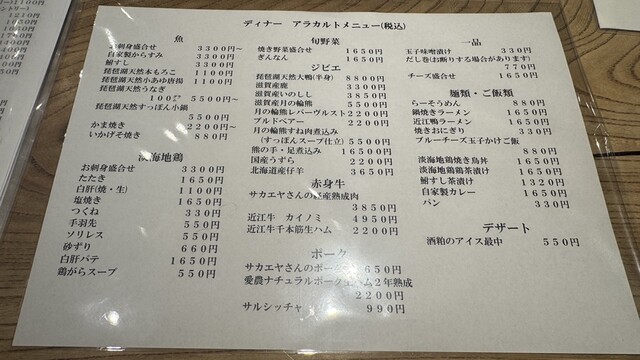 ディナー　アラカルトメニュー(税込)
魚
お刺身盛合せ　3300円〜
自家製からすみ　3300円
鮒すし　3300円
琵琶湖天然本もろこ　1100円
琵琶湖天然小あゆ唐揚　1100円
琵琶湖天然うなぎ
100㌘　5500円〜
琵琶湖天然すっぽん小鍋
5500円
かま焼き　2200円〜
いかげそ焼き　880円
淡海地鶏
お刺身盛合せ　3300円
たたき　1650円
白肝(焼・生)　1100円
塩焼き　1650円
つくね　330円
手羽先　550円
ソリレス　550円
砂ずり　660円
白肝パテ　1650円
鶏がらスープ　550円
旬野菜
焼き野菜盛合せ　1650円
ぎんなん　1650円
ジビエ
琵琶湖天然大鴨(半身)　8800円
滋賀産鹿　3300円
滋賀産いのしし　3850円
滋賀産月の輪熊　5500円
月の輪熊レバーヴルスト　2200円
ブルドベアー　2200円
月の輪熊すね肉煮込み
(すっぽんスープ仕立)　5500円
熊の手・足煮込み　16500円
国産うずら　2200円
北海道産仔羊　3650円
赤身牛
サカエヤさんの
産熟成肉
3850円
近江牛　カイノミ　4950円
近江牛千本筋生ハム　2200円
ポーク
サカエヤさんのポーク
650円
愛農ナチュラルポーク
ハム2年熟成
2200円
サルシッチャ　990円
一品
玉子味噌漬け　330円
だし巻(お断りする場合があります)
770円
チーズ盛合せ　1650円
麺類・ご飯類
らーそうめん　880円
鍋焼きラーメン　1650円
近江鴨ラーメン　1650円
焼きおにぎり　330円
ブルーチーズ玉子かけご飯
880円
淡海地鶏焼き鳥丼　1650円
淡海地鶏鶏茶漬け　1650円
鮒すし茶漬け　1320円
自家製カレー　1650円
パン　330円
デザート
酒粕のアイス最中　550円